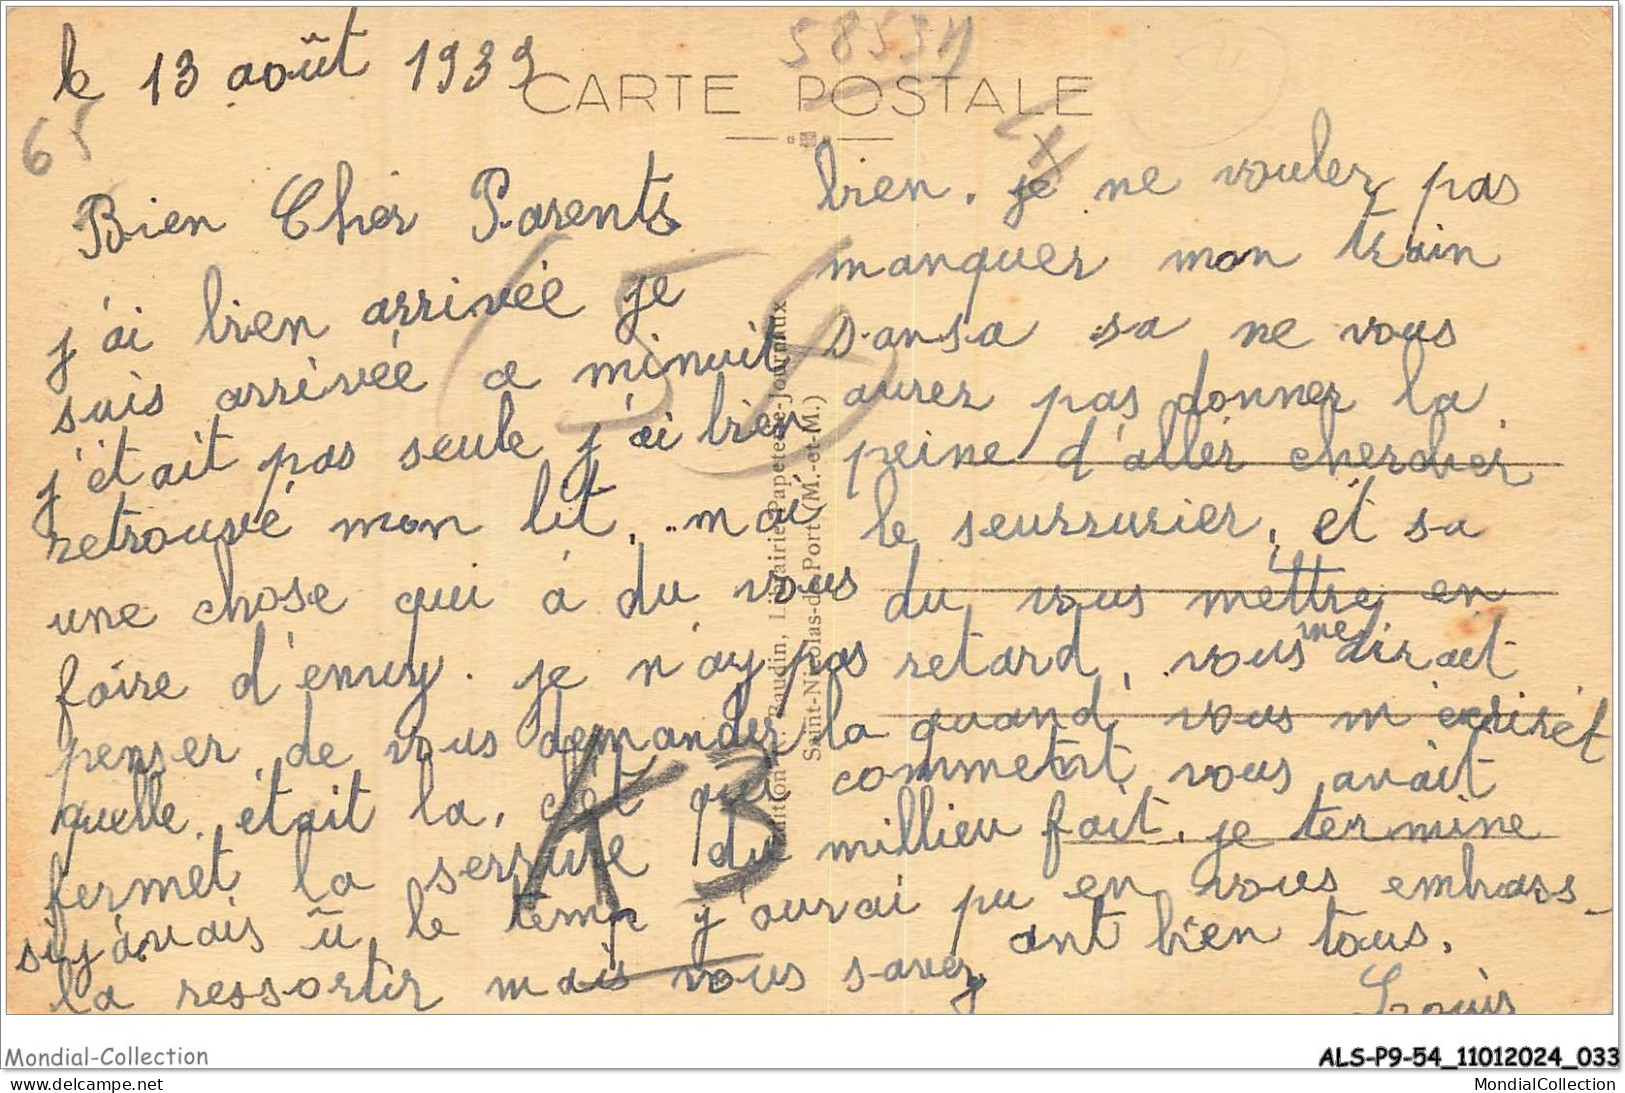 le 13 août 1939
CARTE POSTALE
58534
65
Bien Cher Parents
j'ai bien arrivée je
suis arrivée a minuit
j'était pas seule j'ai bien
retrouvé mon lit, mai
une chose qui à du vous
faire d'enuy. je n'ay pas
penser de vous demander la
quelle était la, c'ét qui
fermet la serrure du millieu
si j'avais û le temp j'aurai pu
la ressortir mais vous savez
bien. je ne vouler pas
manquer mon train
sansa sa ne vous
aurer pas donner la
peine d'aller chercher
le seurrurier, et sa
du vous mettre en
retard, vous me dirait
quand vous m'écrirét
comment vous avait
fait, je termine
en vous embrass-
ant bien tous,
Louis
54
13
Baudin, Librairie-Papeterie-Journaux
Saint-Nicolas-de-Port (M.-et-M.)
Mondial-Collection
delcampe.net
ALS-P9-54_11012024_033
MondialCollection